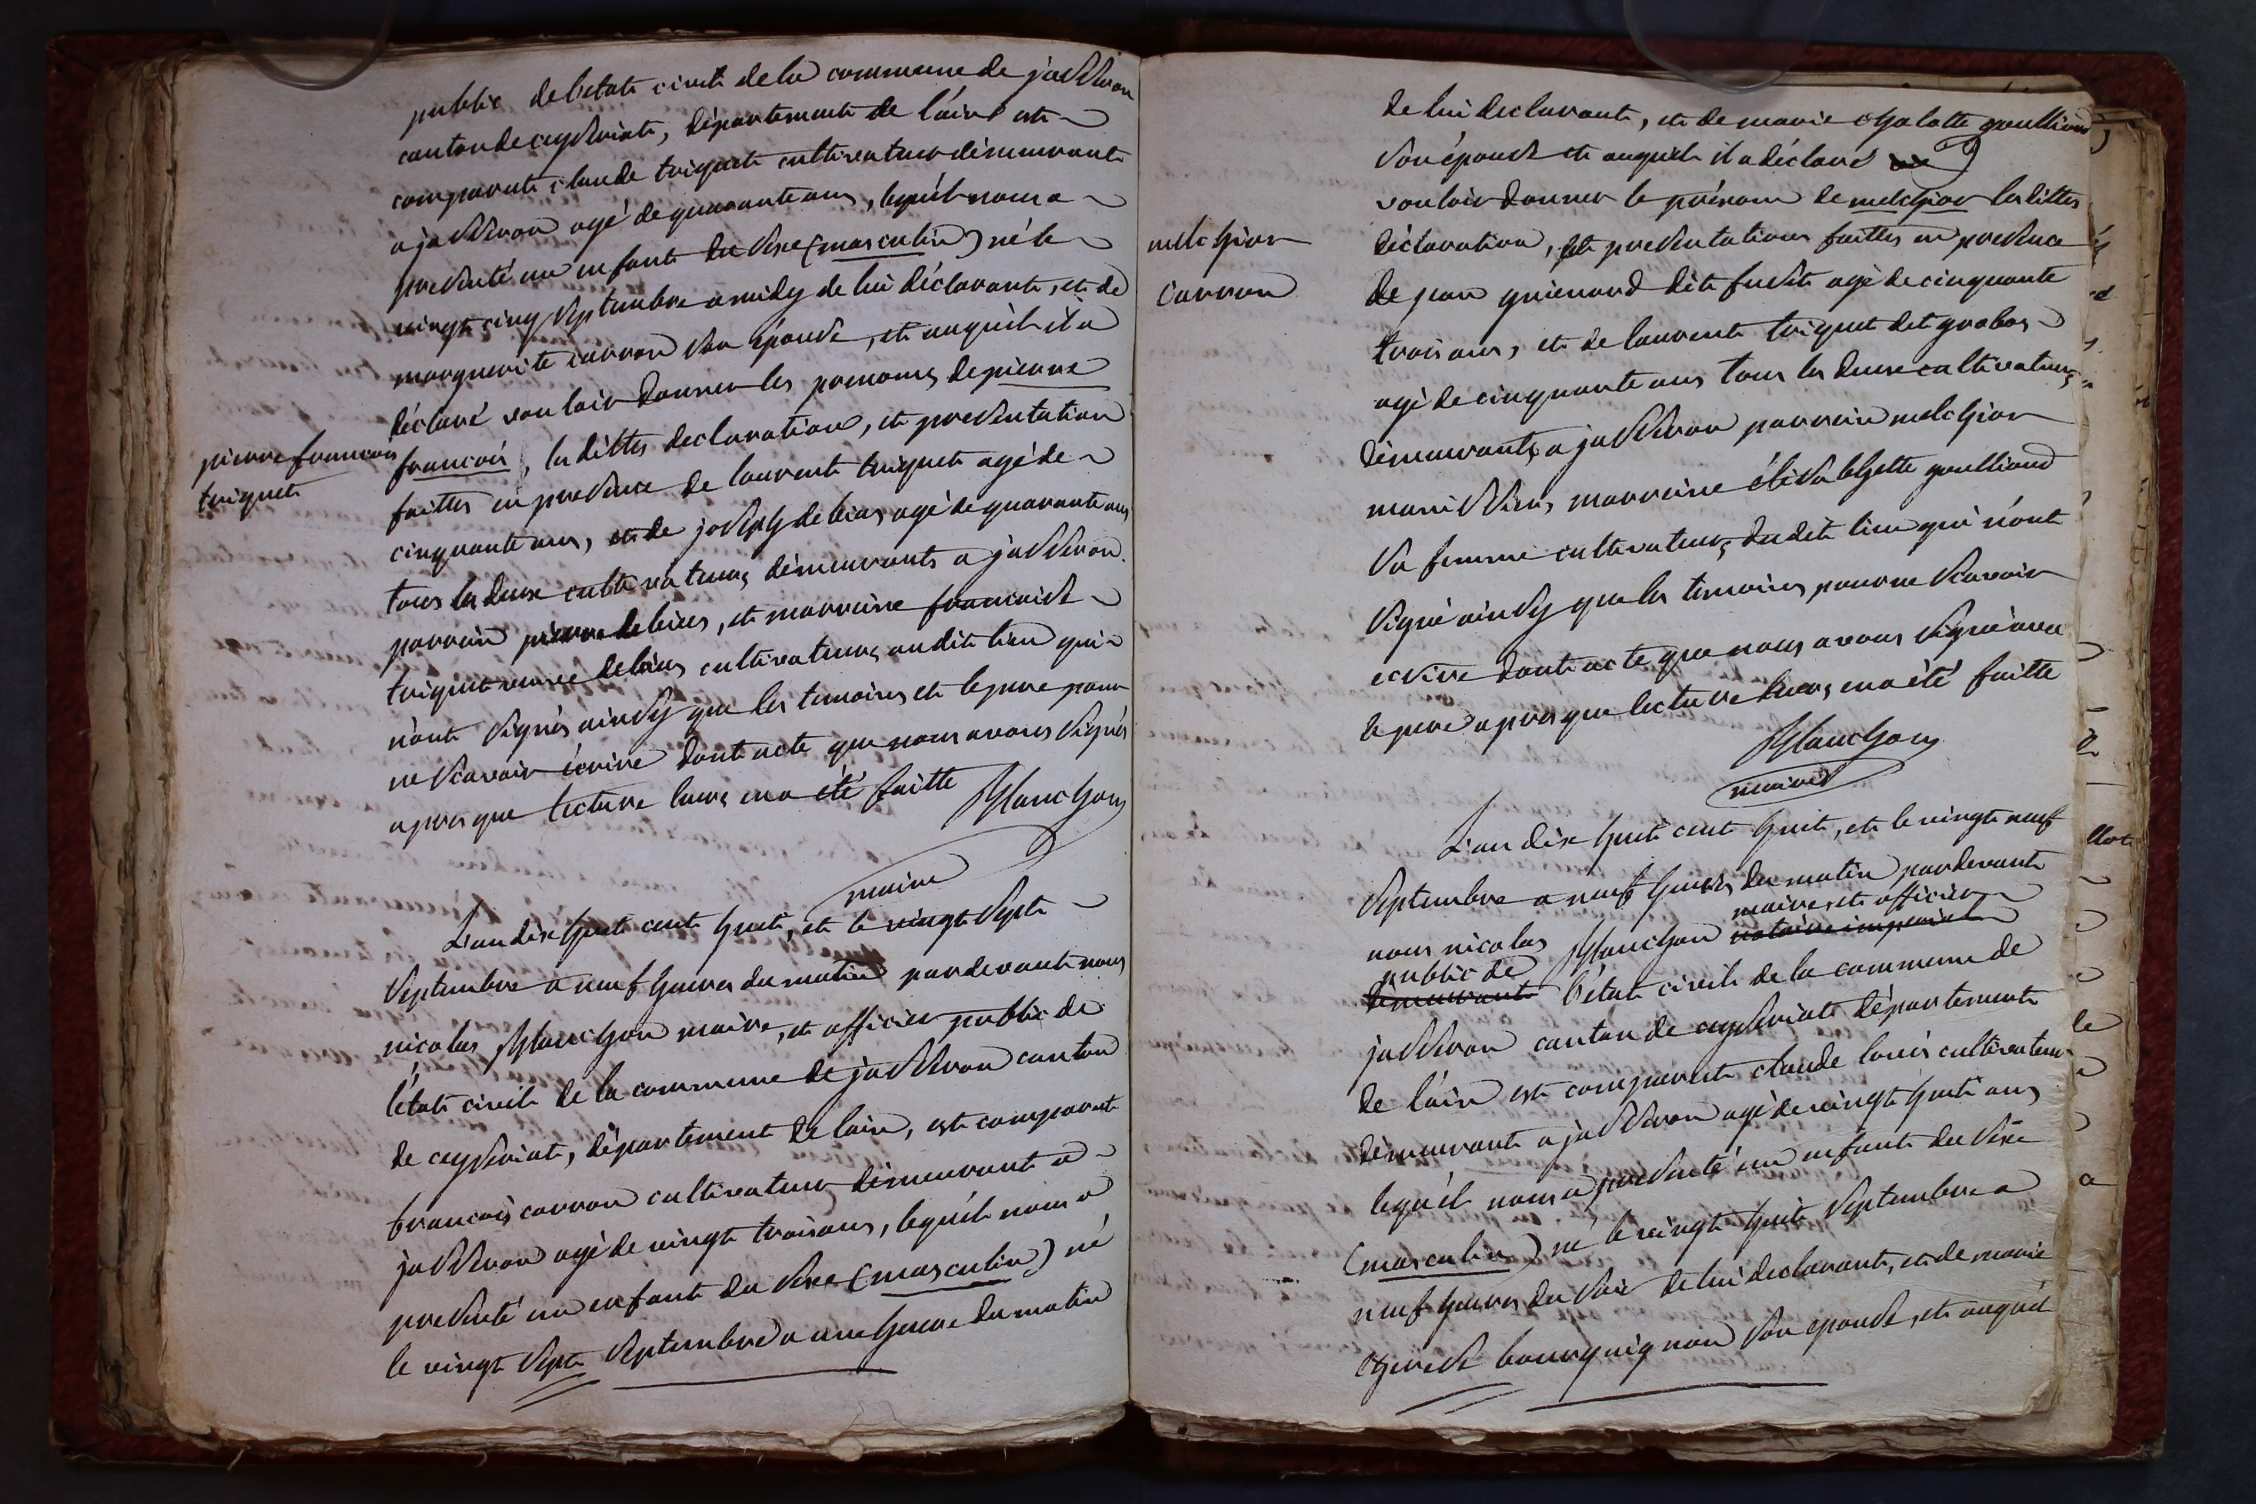 public de l'etat civil de la commune de jasseron
canton de ceyseriat, département de l'ain est
comparut claude triquet cultivateur démeurant
a jasseron agé de quarante ans, lequél nous a
presenté un enfant du sexe (masculin) né le
vingt cinq septembre a midy de lui déclarant, et de
marguerite carron son épouse, et auquél il a
déclaré vouloir donner les prenoms de pierre
pierre francois
triquet
francois, les dittes declaration, et presentation
faittes en presence de laurent triquet agé de
cinquante ans, et de joseph debias agé de quarante ans
tous les deux cultivateurs démeurants a jasseron
parrein pierre debias, et marreine francoise
triquet veuve debias cultivateurs audit lieu qui
n'ont signés ainsy que les temoins et le pere pour
ne scavoir écrire dont acte que nous avons signés
apres que lecture leurs en a été faitte
Planchon
maire
L'an dix huit cent huit, et le vingt sept
septembre a neuf heures du matin pardevant nous
nicolas Planchon maire, et officier public de
l'état civil de la commune de jasseron canton
de ceyseriat, département de lain, est comparut
francois carron cultivateur démeurant a
jasseron agé de vingt trois ans, lequél nous a
presenté un enfant du sexe (masculin) né
le vingt sept septembre a une heure du matin
de lui declarant, et de marie chalotte goulliand
son épouse et auquél il a déclaré
vouloir donner le prénom de melchior les dittes
melchior
carron
déclaration, et presentation faittes en presence
de jean guienard dit fusit agé de cinquante
trois ans, et de laurent triquet dit grobas
agé de cinquante ans tous les deux cultivateurs
démeurants a jasseron parrein melchior
manissieu, marreine élisabhette goulliand
sa femme cultivateurs dudit lieu qui n'ont
signé ainsy que les temoins pour ne scavoir
ecrire dont acte que nous avons signé avec
le pere apres que lecture leurs en a été faitte
Planchon
maire
L'an dix huit cent huit, et le vingt neuf
septembre a neuf heures du matin pardevant
maire et officier
nous nicolas Planchon notaire imperial
public de
démeurant l'état civil de la commune de
jasseron canton de ceyseriat département
de l'ain est comparut claude louis cultivateur
démeurant a jasseron agé de vingt huit ans
lequél nous a presenté un enfant du sexe
(masculin) né le vingt huit septembre a
neuf heures du soir de lui declarant, et de marie
therese bourguignon son epouse, et auquél